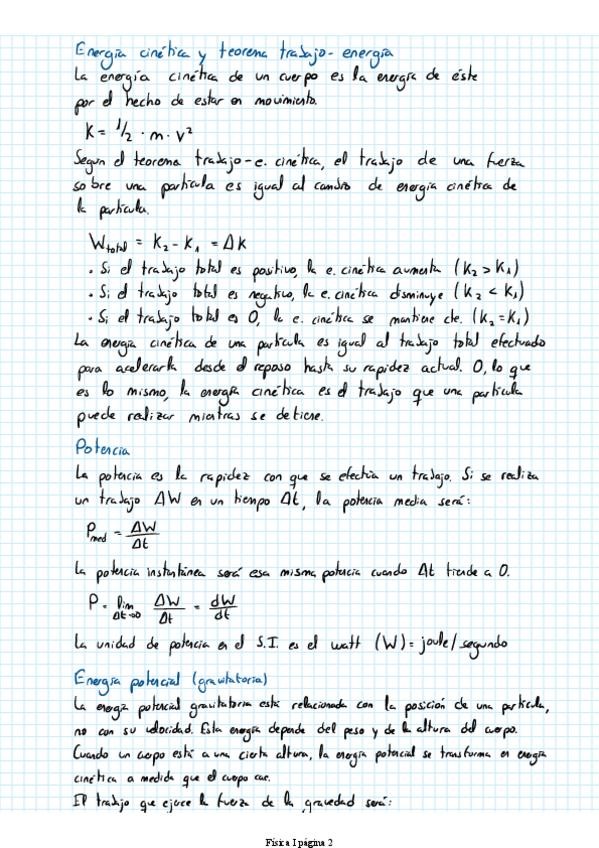 Energía cinética y teorema trabajo-energía
La energía cinética de un cuerpo es la energía de éste
por el hecho de estar en movimiento.
K = 1/2 · m · v²
Segun el teorema trabajo-e. cinética, el trabajo de una fuerza
sobre una partícula es igual al cambio de energía cinética de
la partícula.
W_total = K₂ - K₁ = ΔK
· Si el trabajo total es positivo, la e. cinética aumenta (K₂ > K₁)
· Si el trabajo total es negativo, la e. cinética disminuye (K₂ < K₁)
· Si el trabajo total es 0, la e. cinética se mantiene cte. (K₂ = K₁)
La energía cinética de una partícula es igual al trabajo total efectuado
para acelerarla desde el reposo hasta su rapidez actual. O, lo que
es lo mismo, la energía cinética es el trabajo que una partícula
puede realizar mientras se detiene.
Potencia
La potencia es la rapidez con que se efectúa un trabajo. Si se realiza
un trabajo ΔW en un tiempo Δt, la potencia media será:
P_med = ΔW/Δt
La potencia instantánea será esa misma potencia cuando Δt tiende a 0.
P = lim Δt→0 ΔW/Δt = dW/dt
La unidad de potencia en el S.I. es el watt (W) = joule/segundo
Energía potencial (gravitatoria)
La energía potencial gravitatoria está relacionada con la posición de una partícula,
no con su velocidad. Esta energía depende del peso y de la altura del cuerpo.
Cuando un cuerpo está a una cierta altura, la energía potencial se transforma en energía
cinética a medida que el cuerpo cae.
El trabajo que ejerce la fuerza de la gravedad será:
Física I página 2